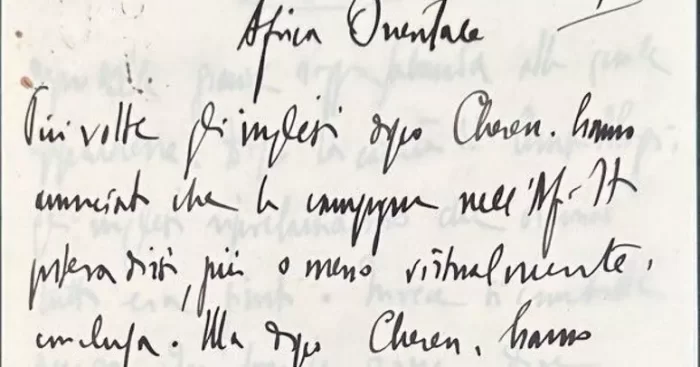 Africa Orientale
Più volte gli inglesi dopo Cheren. hanno
annunciato che la campagna nell'Af-It
poteva dirsi, più o meno virtualmente,
conclusa. Ma dopo Cheren, hanno